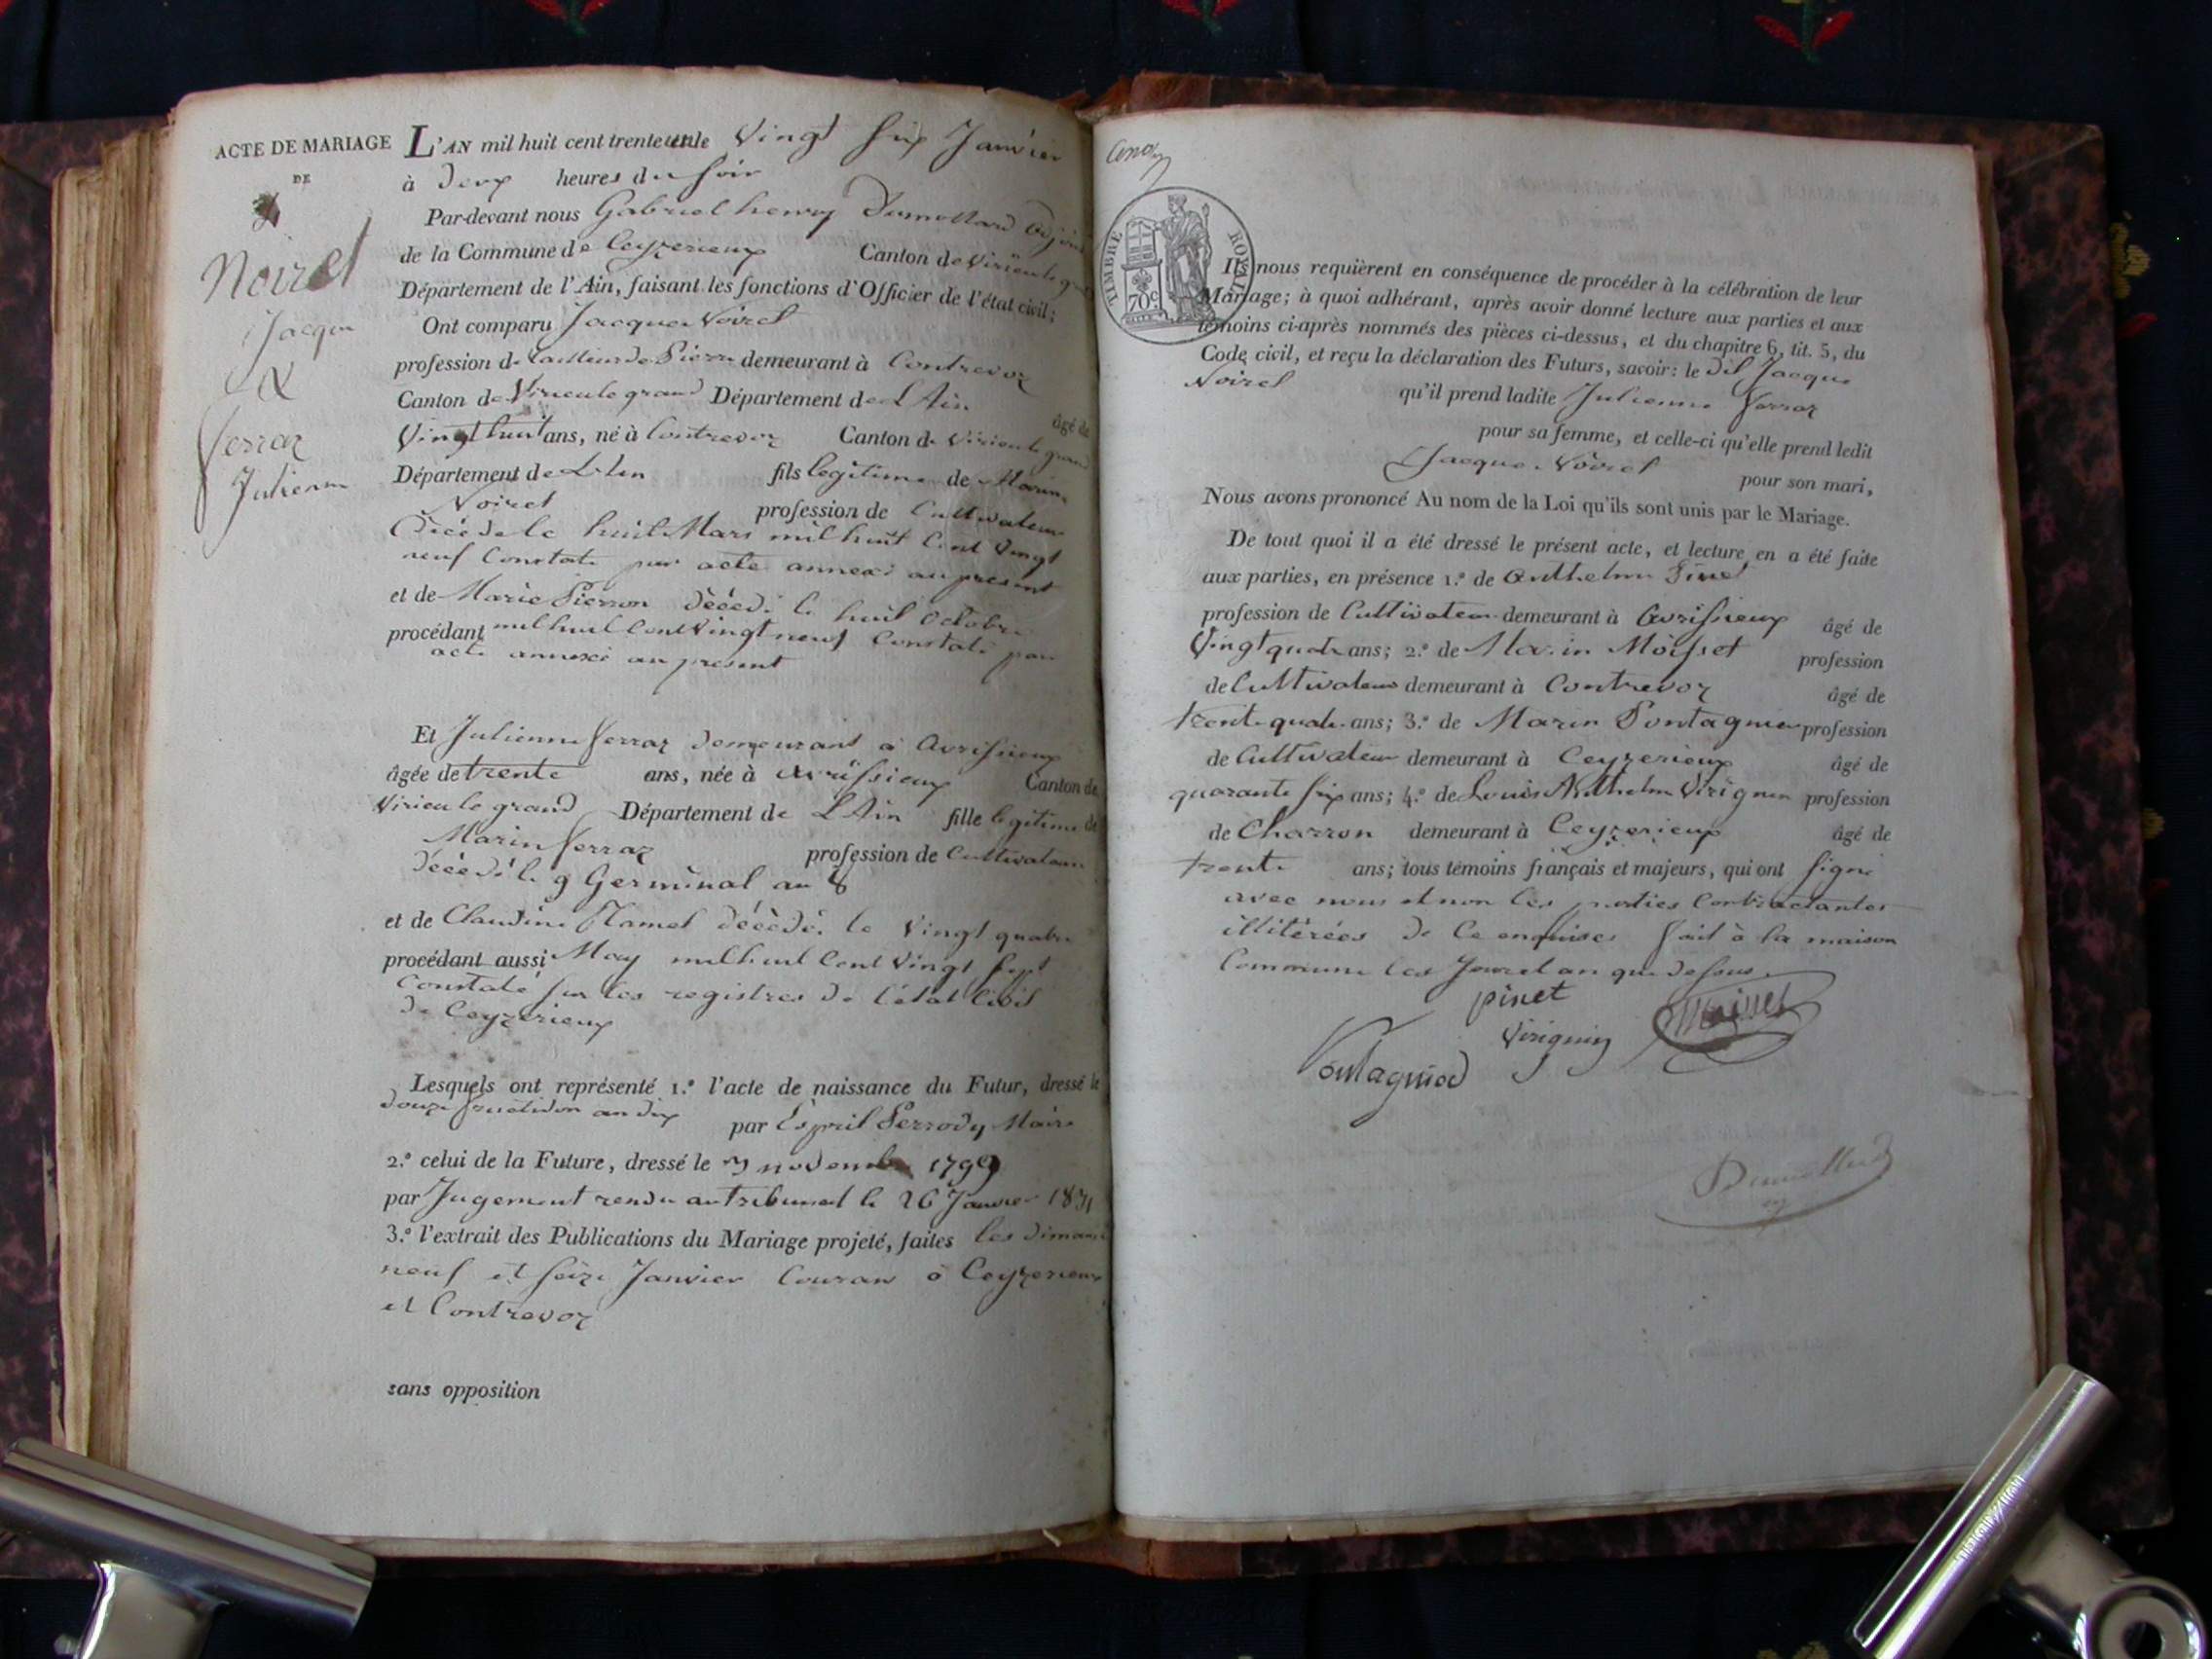 ACTE DE MARIAGE
DE
Noirel
Jacque
&
Ferraz
Julienne
L'AN mil huit cent trente un le Vingt six Janvier
à deux heures du soir
Par-devant nous Gabriel henry Dumollard adjoint
de la Commune de Ceyzerieux Canton de Virieu le grand
Département de l'Ain, faisant les fonctions d'Officier de l'état civil;
Ont comparu Jacque Noirel
profession de tailleur de Pierre demeurant à Contrevoz
Canton de Virieu le grand Département de L'Ain
âgé de
Vingt huit ans, né à Contrevoz Canton de Virieu le grand
Département de L'Ain fils legitime de Marin
Noirel profession de Cultivateur
décédé le huit Mars mil huit Cent Vingt
neuf Constaté par acte annexé au présent
et de Marie Pierron décédé le huit Octobre
procédant mil huit Cent Vingt neuf Constaté par
acte annexé au present
Et Julienne Ferraz demeurant à Avrissieux
âgée de trente ans, née à Avrissieux Canton de
Virieu le grand Département de L'Ain fille legitime de
Marin Ferraz profession de Cultivateur
décédé le 9 Germinal an 8
et de Claudine décédé le Vingt quatre
procédant aussi May mil huit Cent Vingt Sept
Constaté sur les registres de l'état Civil
de Ceyzerieux
Lesquels ont représenté 1.º l'acte de naissance du Futur, dressé le
douze fructidor an dix par Esprit Perrody Maire
2.º celui de la Future, dressé le novembre 1799
par Jugement rendu au tribunal le 26 Janvier 1831
3.º l'extrait des Publications du Mariage projeté, faites les dimanches
neuf et seize Janvier Courant à Ceyzerieux
et Contrevoz
sans opposition
TIMBRE ROYAL
70c
Ils nous requièrent en conséquence de procéder à la célébration de leur
Mariage; à quoi adhérant, après avoir donné lecture aux parties et aux
témoins ci-après nommés des pièces ci-dessus, et du chapitre 6, tit. 5, du
Code civil, et reçu la déclaration des Futurs, savoir: le dit Jacque
Noirel qu'il prend ladite Julienne Ferraz
pour sa femme, et celle-ci qu'elle prend ledit
Jacque Noirel pour son mari,
Nous avons prononcé Au nom de la Loi qu'ils sont unis par le Mariage.
De tout quoi il a été dressé le présent acte, et lecture en a été faite
aux parties, en présence 1.º de Anthelme Pinet
profession de Cultivateur demeurant à Avrissieux âgé de
Vingt quatre ans; 2.º de Marin Moisset profession
de Cultivateur demeurant à Contrevoz âgé de
trente quatre ans; 3.º de Marin Pontagnier profession
de Cultivateur demeurant à Ceyzerieux âgé de
quarante six ans; 4.º de Louis Anthelme Virignin profession
de Charron demeurant à Ceyzerieux âgé de
trente ans; tous témoins français et majeurs, qui ont signé
avec nous et non les parties Contractantes
illitérées de Ce enquises fait à la maison
Commune les Jour et an que dessus
pinet
Virignin